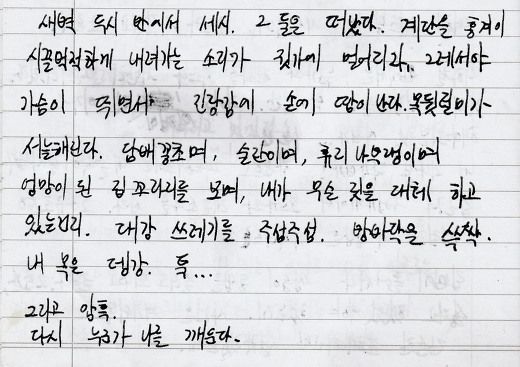 새벽 두시 반에서 세시. 그 둘은 떠났다. 계단을 통해
시끌벅적하게 내려가는 소리가 귓가에 멀어지자, 그제서야
가슴이 뛰면서 긴장감에 손에 땀이 난다. 목뒷덜미가
서늘해진다. 담배꽁초며, 술잔이며, 휴지 나부랭이며
엉망이 된 집 꼬라지를 보며, 내가 무슨 짓을 대체 하고
있는건지. 대강 쓰레기를 주섬주섬. 방바닥을 쓱싹.
내 목은 뎅강. 툭...
그리고 암흑.
다시 누가 나를 깨운다.